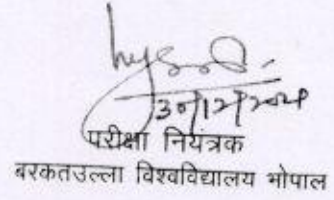 30/12/2020
परीक्षा नियंत्रक
बरकतउल्ला विश्वविद्यालय भोपाल